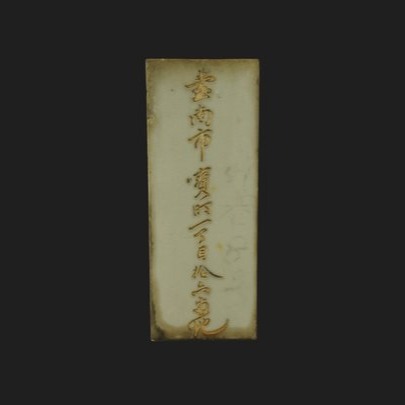 臺南市寶町一丁目拾六番地